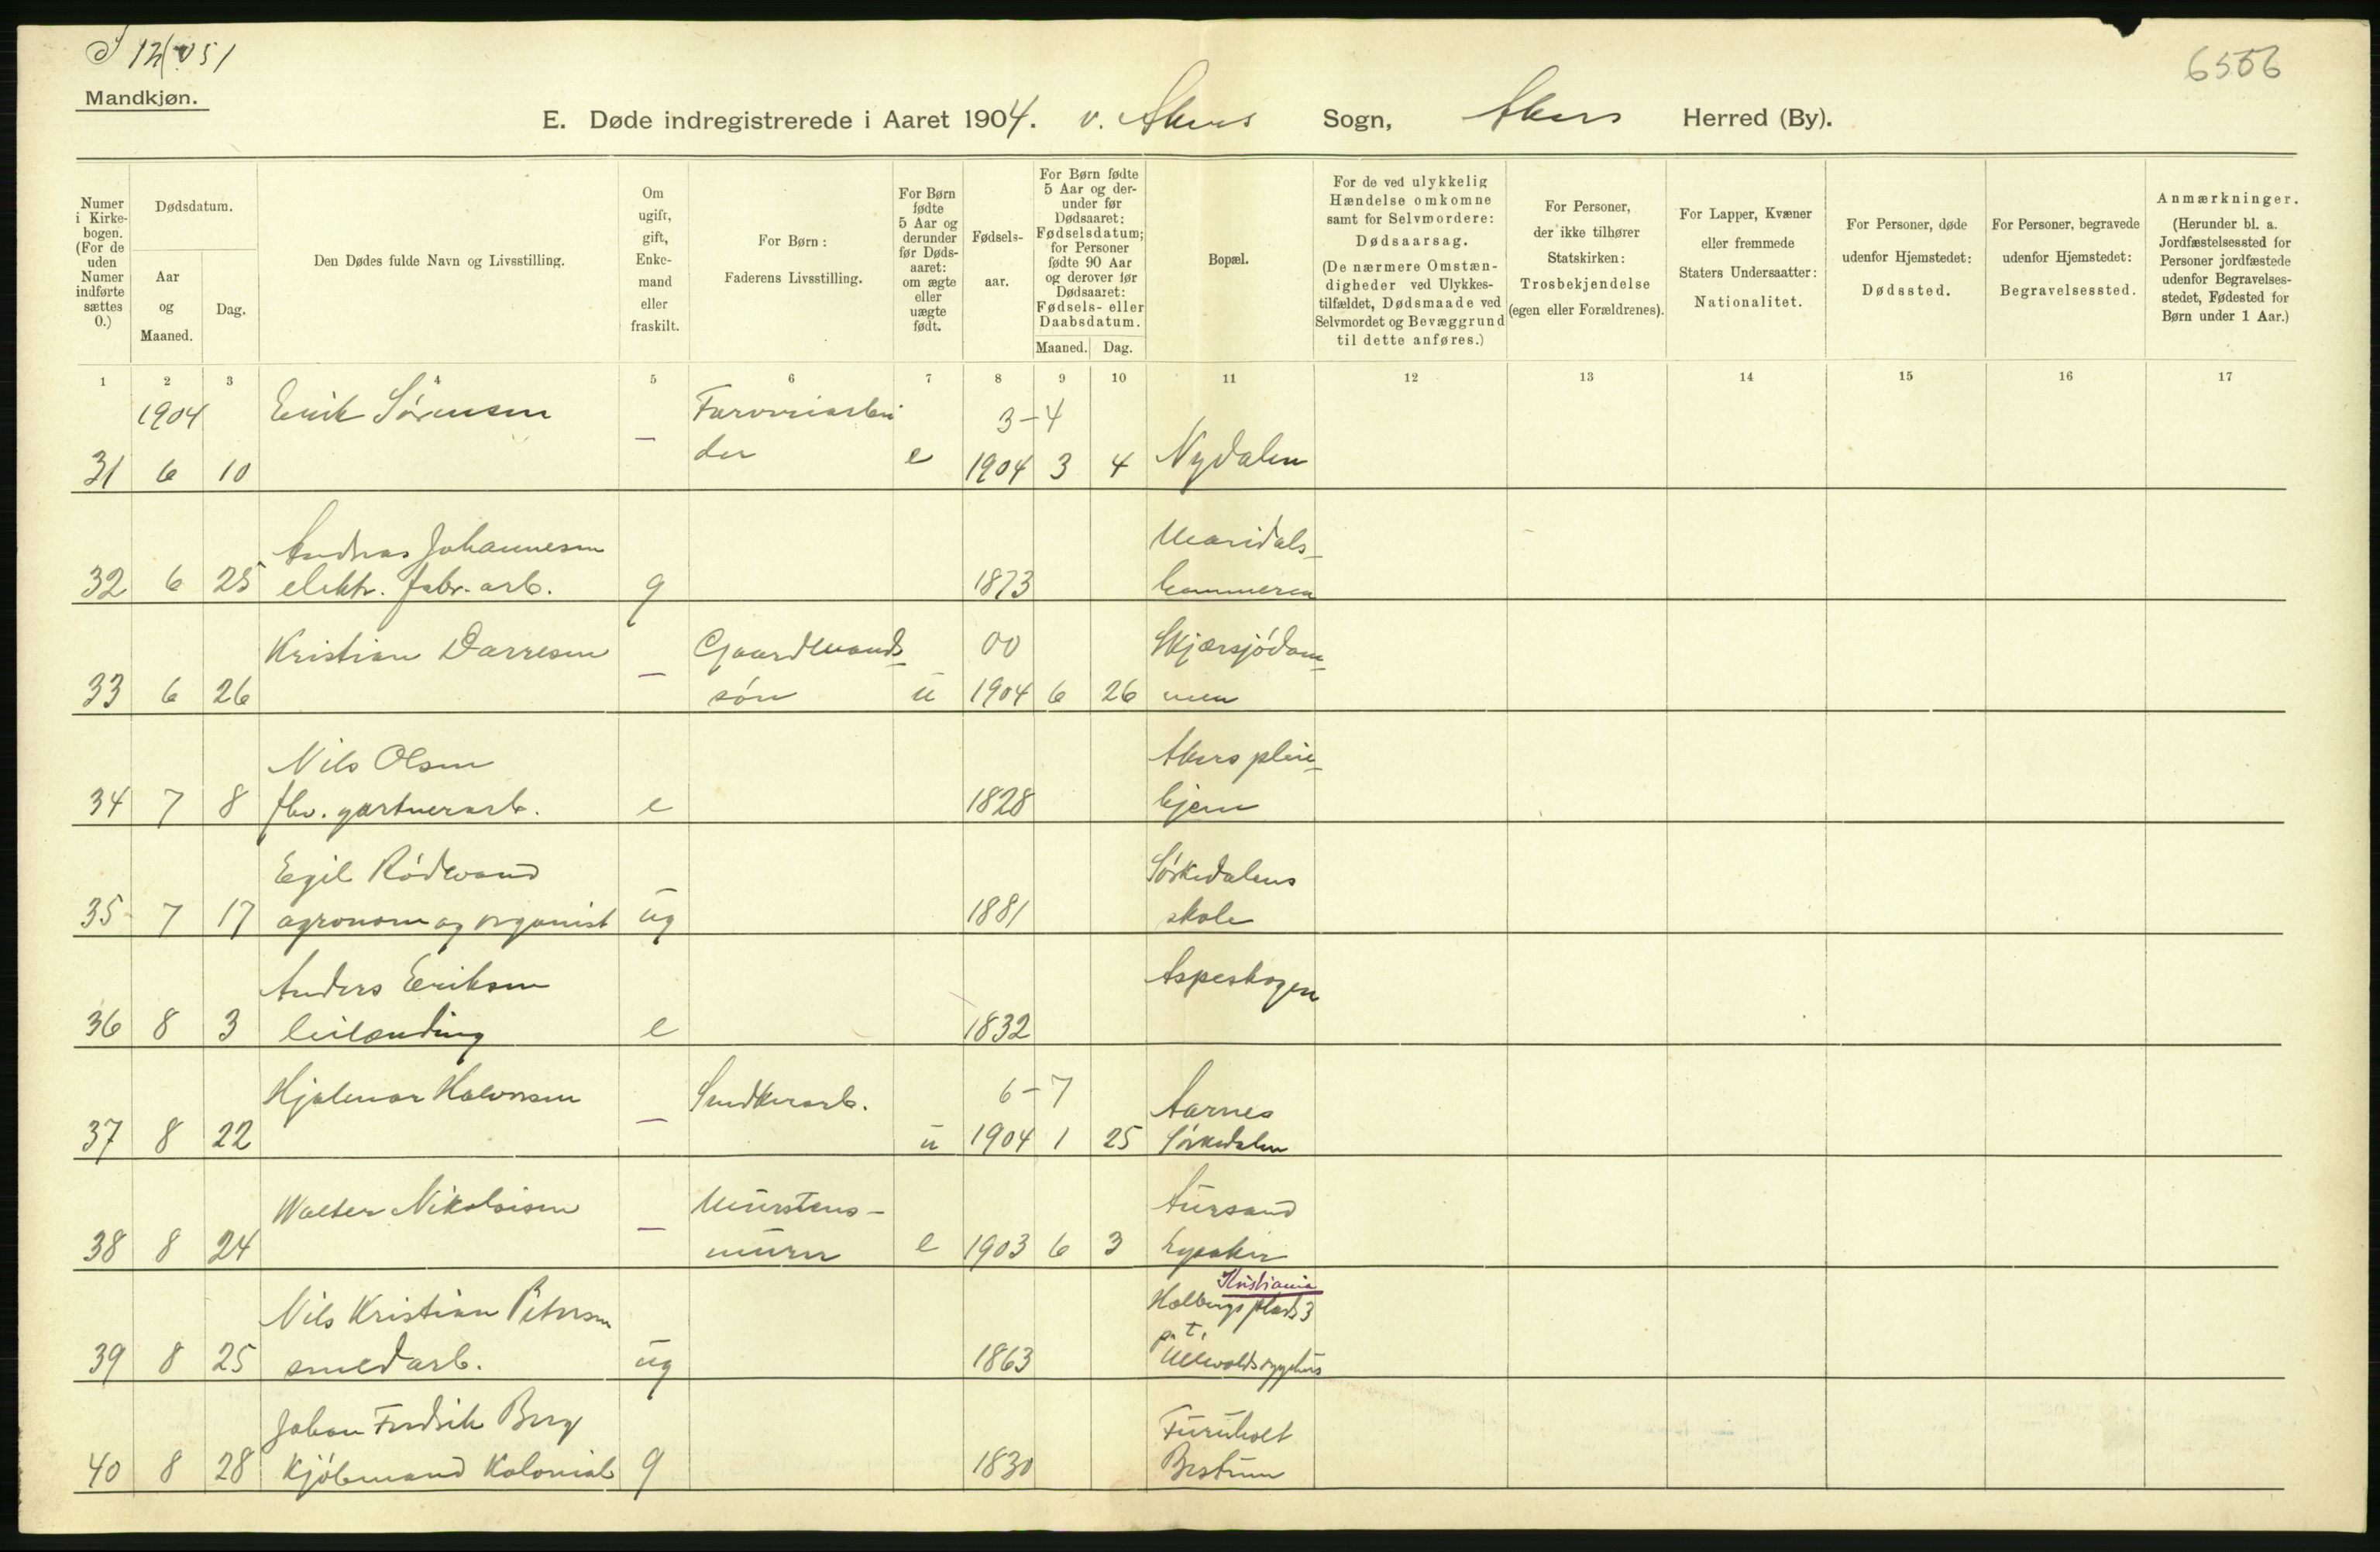 S 12/051
6506
Mandkjøn.
E. Døde indregistrerede i Aaret 1904. v. Akers Sogn, Akers Herred (By).
Numer i Kirkebogen. (For de uden Numer indførte sættes 0.)
Dødsdatum.
Aar og Maaned.
Dag.
Den Dødes fulde Navn og Livsstilling.
Om ugift, gift, Enkemand eller fraskilt.
For Børn: Faderens Livsstilling.
For Børn fødte 5 Aar og derunder før Dødsaaret: om ægte eller uægte født.
Fødselsaar.
For Børn fødte 5 Aar og derunder før Dødsaaret: Fødselsdatum; for Personer fødte 90 Aar og derover før Dødsaaret: Fødsels- eller Daabsdatum.
Maaned. Dag.
Bopæl.
For de ved ulykkelig Hændelse omkomne samt for Selvmordere: Dødsaarsag. (De nærmere Omstændigheder ved Ulykkestilfældet, Dødsmaade ved Selvmordet og Bevæggrund til dette anføres.)
For Personer, der ikke tilhører Statskirken: Trosbekjendelse (egen eller Forældrenes).
For Lapper, Kvæner eller fremmede Staters Undersaatter: Nationalitet.
For Personer, døde udenfor Hjemstedet: Dødssted.
For Personer, begravede udenfor Hjemstedet: Begravelsessted.
Anmærkninger. (Herunder bl. a. Jordfæstelsessted for Personer jordfæstede udenfor Begravelsesstedet, Fødested for Børn under 1 Aar.)
1 2 3 4 5 6 7 8 9 10 11 12 13 14 15 16 17
1904 Erik Sørensen Farveriarbei 3-4
31 6 10 — der e 1904 3 4 Nydalen
Andreas Johannesen Maridals-
32 6 25 elektr. fabr. arb. g 1873 hammeren
Kristian Darresen Gaardmands- 00 Skjærsjødam-
33 6 26 — søn u 1904 6 26 men
Nils Olsen Akers pleie-
34 7 8 fhv. gartnerarb. e 1828 hjem
Egil Rödwand Sørkedalens
35 7 17 agronom og organist ug 1881 skole
Anders Eriksen Aspeskogen
36 8 3 leilænding e 1832
Hjalmar Halvorsen Snedkerarb. 6-7 Aarnes
37 8 22 — u 1904 1 25 Sørkedalen
Walter Nikolaisen Murstens- Aursand
38 8 24 — murer e 1903 6 3 Lysaker
Kristiania
Nils Kristian Petersen Holbergs plads 3
p. t.
39 8 25 smedarb. ug 1863 Ullevolds sygehus
Johan Fredrik Berg Furuholt
40 8 28 Kjøbmand Kolonial g 1830 Bestum